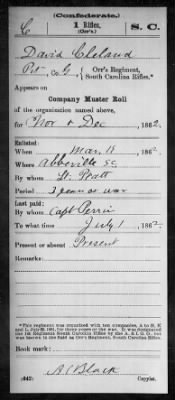 (Confederate.)
C 1 Rifles. S. C.
(Orr's.)
David Cleland
Pvt, Co. G, Orr's Regiment,
South Carolina Rifles.*
Appears on
Company Muster Roll
of the organization named above,
for Nov & Dec, 1862.
Enlisted:
When Mar 18, 186
Where Abbeville SC
By whom Lt. Pratt
Period 3 years or war
Last paid:
By whom Capt Perrin
To what time July 1, 1862.
Present or absent Present
Remarks:
*This regiment was organized with ten companies, A to
and L, July 20, 1861, for three years or the war. It was designated
the 1st Regiment South Carolina Rifles by the A. & I. G. O., but
was known in the field as Orr's Regiment, South Carolina Rifles.
Book mark:
A C Black
(642) Copyist.